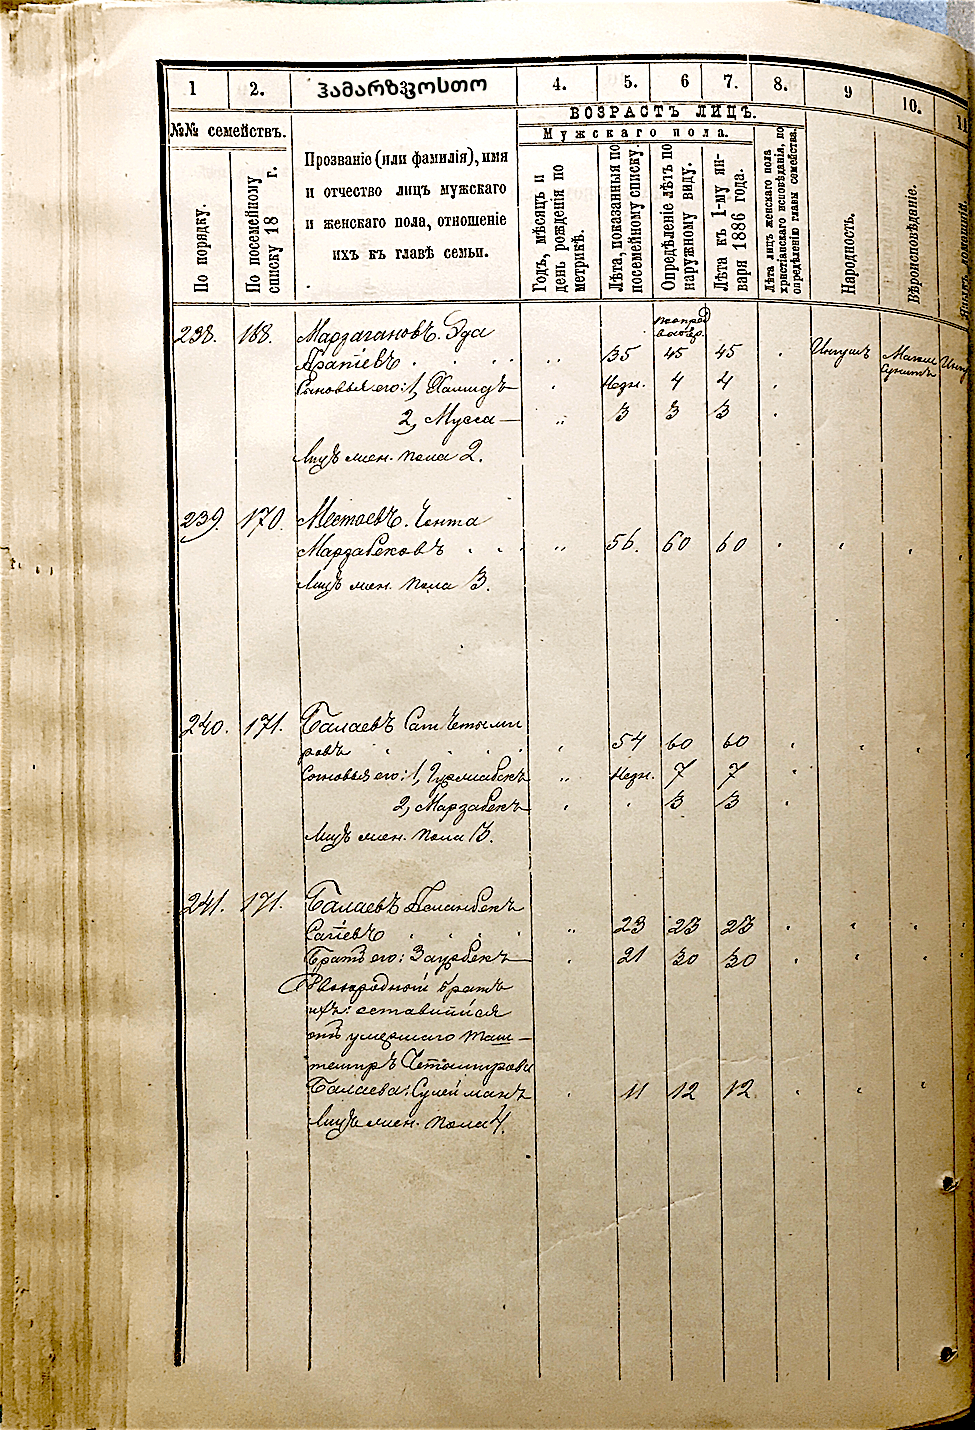 1 2. ჰამარზჳჳოსთო 4. 5. 6 7. 8. 9 10. 11
ВОЗРАСТЪ ЛИЦЪ.
№№ семействъ.
Мужскаго пола.
По порядку.
По посемейному списку 18 г.
Прозваніе (или фамилія), имя
и отчество лицъ мужскаго
и женскаго пола, отношеніе
ихъ къ главѣ семьи.
Годъ, мѣсяцъ и день рожденія по метрикѣ.
Лѣта, показанныя по посемейному списку.
Опредѣленіе лѣтъ по наружному виду.
Лѣта къ 1-му января 1886 года.
Лѣта лицъ женскаго пола христіанскаго исповѣданія, по опредѣленію главы семейства.
Народность.
Вѣроисповѣданіе.
238. 168. Марзагановъ. Эда
Арапіевъ 35 45 45 Ингушъ Магом. Сунитъ Инг
Сыновья его: 1, Хамидъ Недн. 4 4
2, Мусса — 3 3 3
Лицъ жен. пола 2.
239. 170. Местоевъ. Чента
Марзабековъ 56. 60 60
Лицъ жен. пола 3.
240. 171. Балаевъ Сат Четеми
ровъ 54 60 60
Сыновья его: 1, Гурмабекъ Недн. 7 7
2, Марзабекъ 3 3
Лицъ жен. пола 3.
241. 171. Балаевъ Асланбекъ
Сатіевъ 23 23 23
Братъ его: Заурбекъ 21 30 30
Двоюродній братъ
ихъ: оставшійся
отъ умершаго Таш-
темиръ Четомирова
Балаева: Сулейманъ 11 12 12
Лицъ жен. пола 4.